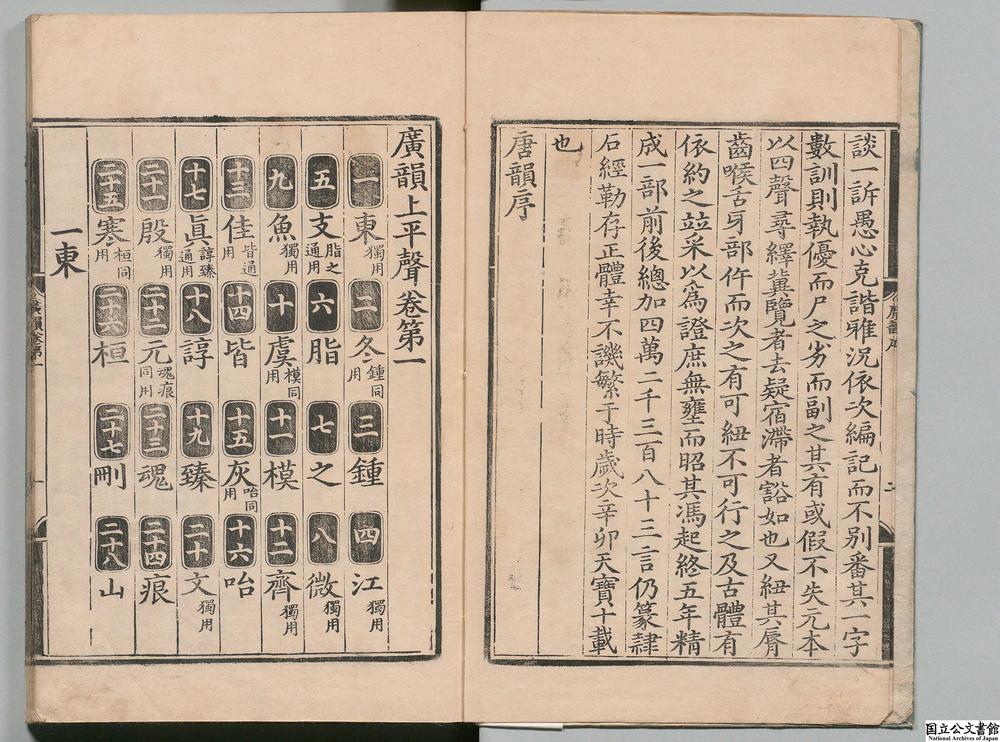 談一訴愚心克諧雅況依次編記而不別番其一字
數訓則執優而尸之劣而副之其有或假不失元本
以四聲尋繹冀覽者去疑宿滯者豁如也又紐其脣
齒喉舌牙部仵而次之有可紐不可行之及古體有
依約之竝采以爲證庶無壅而昭其馮起終五年精
成一部前後總加四萬二千三百八十三言仍篆隷
石經勒存正體幸不譏繁于時歲次辛卯天寶十載
也
唐韻序
廣韻上平聲卷第一
一東獨用 二冬鍾同用 三鍾 四江獨用
五支脂之通用 六脂 七之 八微獨用
九魚獨用 十虞模同用 十一模 十二齊獨用
十三佳皆通用 十四皆 十五灰咍同用 十六咍
十七眞諄臻通用 十八諄 十九臻 二十文獨用
二十一殷獨用 二十二元魂痕同用 二十三魂 二十四痕
二十五寒桓同用 二十六桓 二十七刪 二十八山
一東
国立公文書館
National Archives of Japan